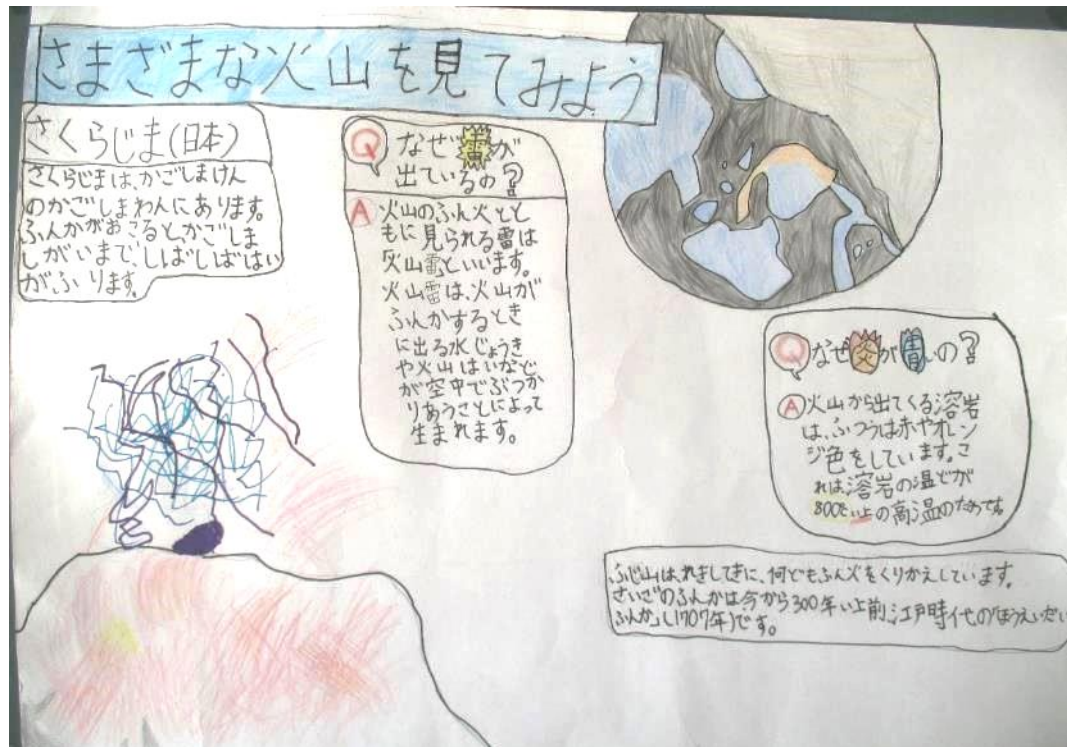 さまざまな火山を見てみよう
さくらじま(日本)
さくらじまは、かごしまけん
のかごしまわんにあります。
ふんかがおこると、かごしま
しがいまで、しばしばはい
がふります。
Q なぜ雷が
出ているの?
A 火山のふん火とと
もに見られる雷は
火山雷といいます。
火山雷は、火山が
ふんかするとき
に出る水じょうき
や火山はいなど
が空中でぶつか
りあうことによって
生まれます。
Q なぜ炎が青いの?
A 火山から出てくる溶岩
は、ふつうは赤やオレン
ジ色をしています。こ
れは溶岩の温どが
800℃以上の高温のためです
ふじ山は、れきしてきに、何どもふん火をくりかえしています。
さいごのふんかは今から300年い上前、江戸時代の「ほうえいだい
ふんか」(1707年)です。